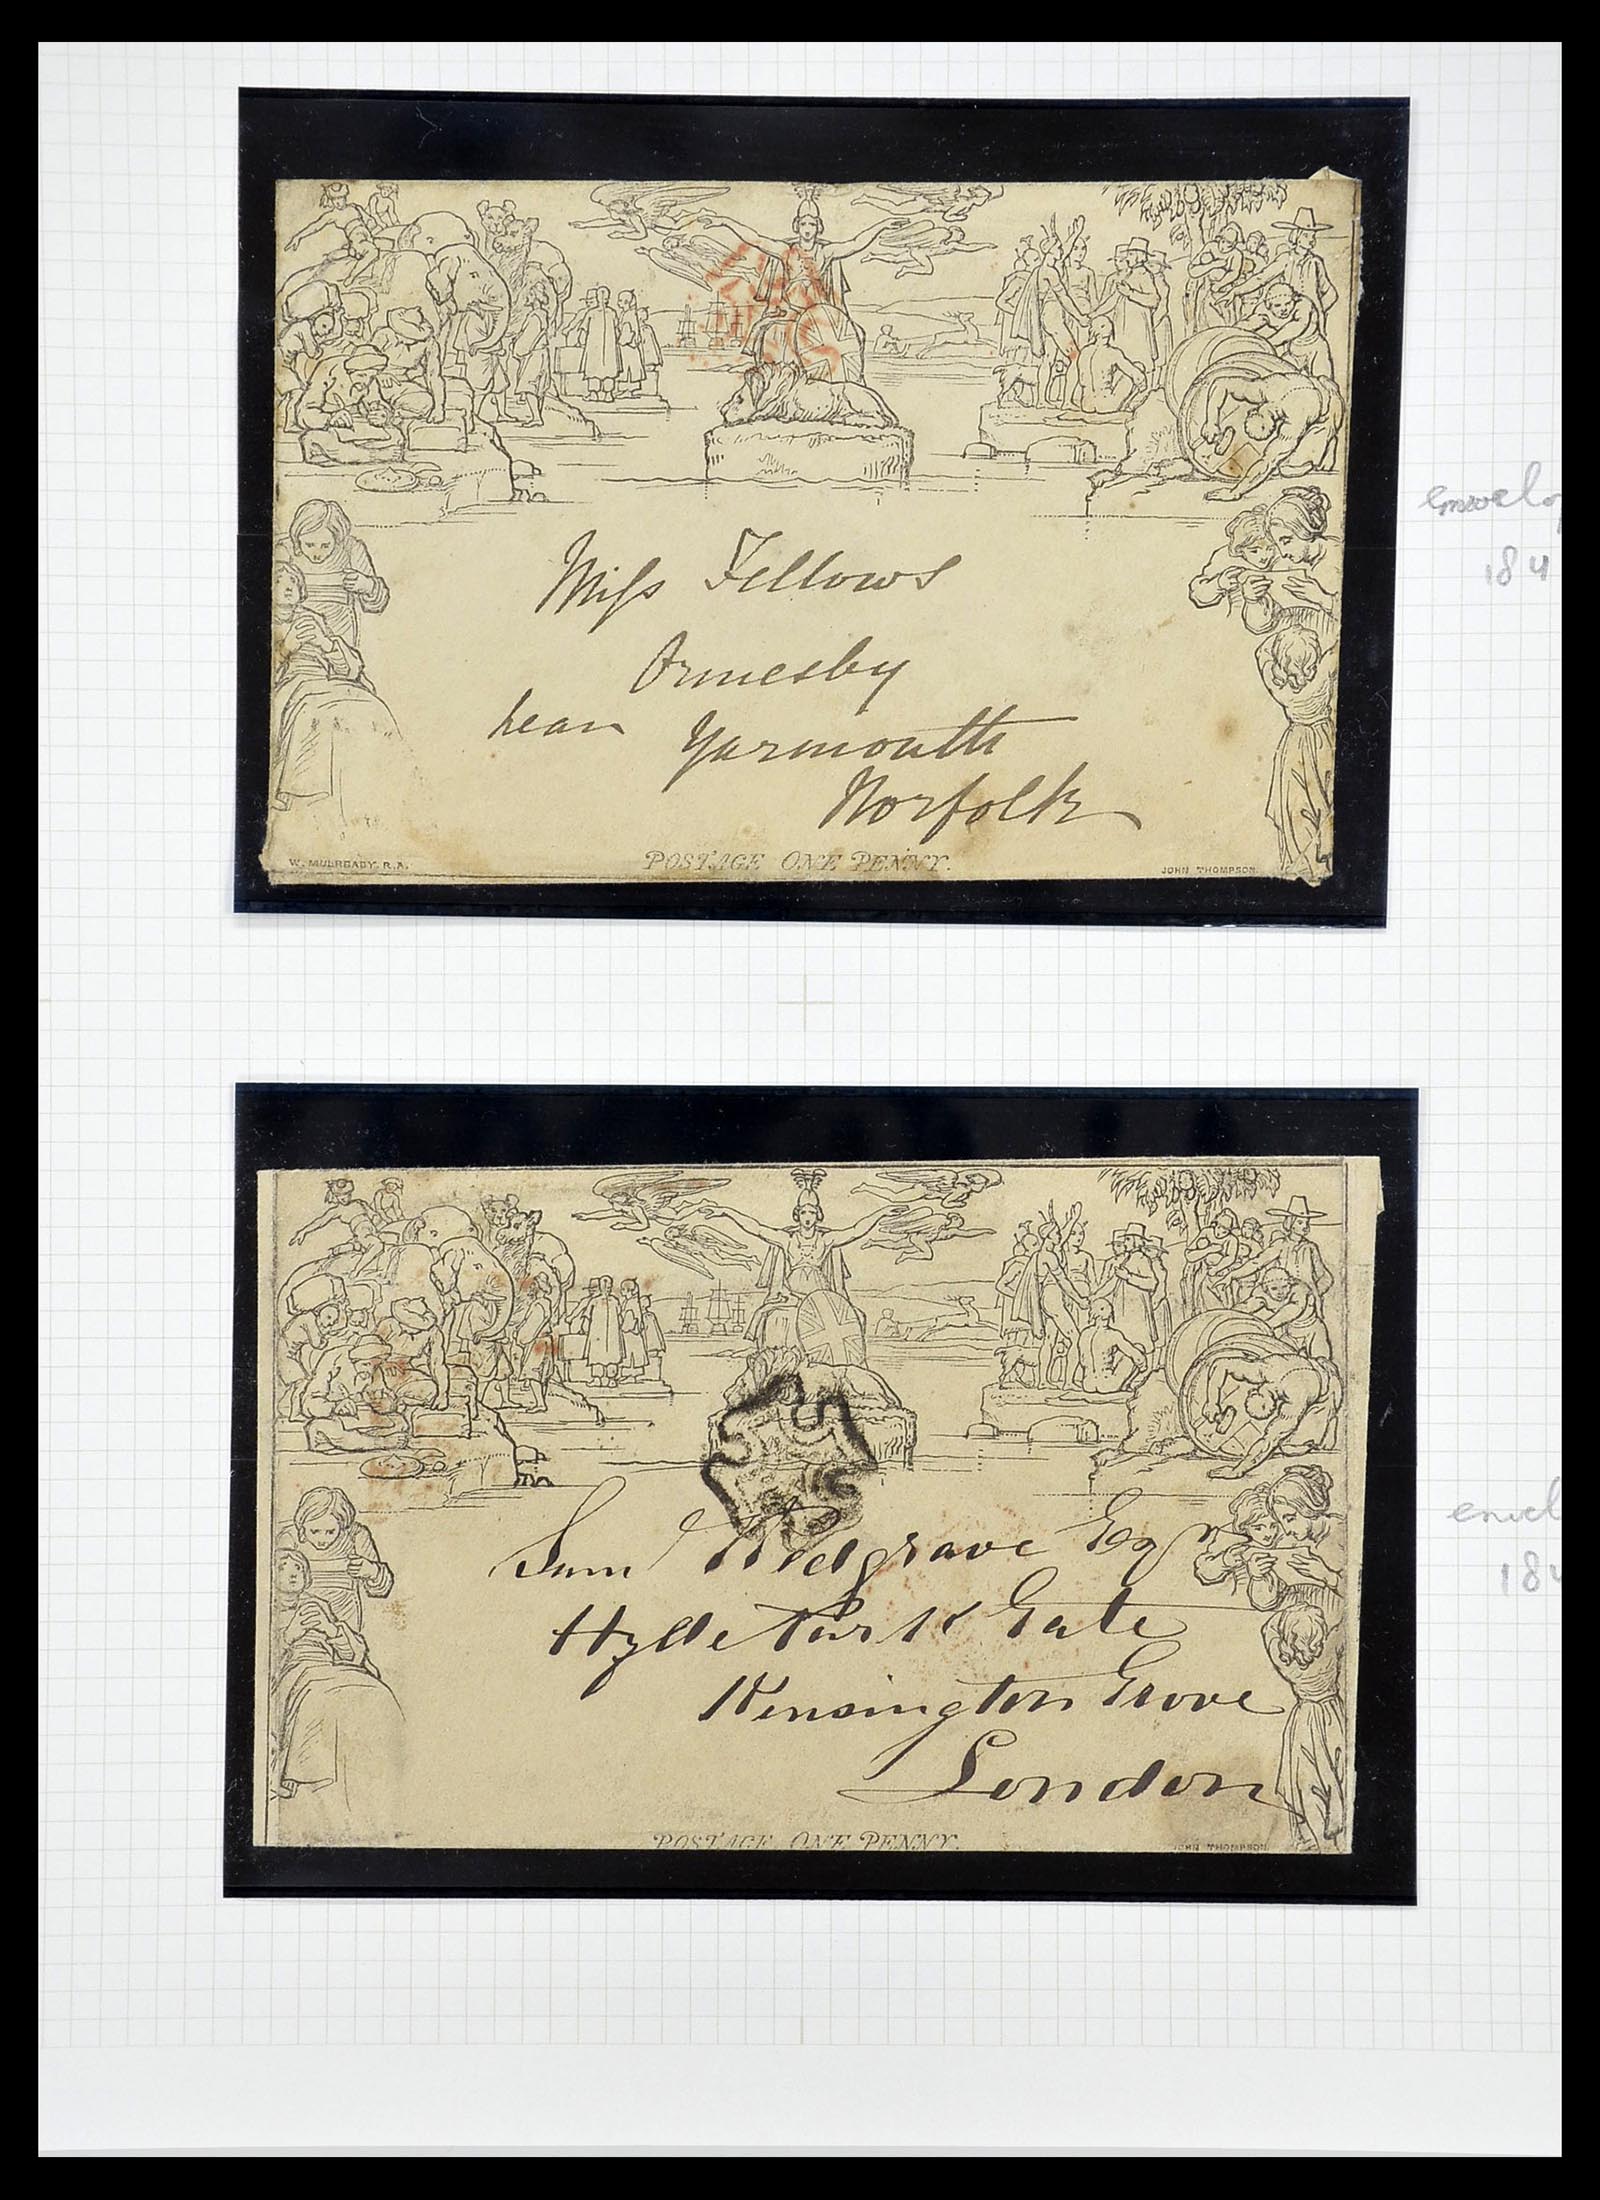 Miss Fellows
Ormesby
near Yarmouth
Norfolk
W. MULREADY. R.A.
POSTAGE ONE PENNY.
JOHN THOMPSON.
envelop
184
Saml Redgrave Esqr
Hyde Park Gate
Kensington Grove
London
POSTAGE ONE PENNY.
JOHN THOMPSON.
envel
184